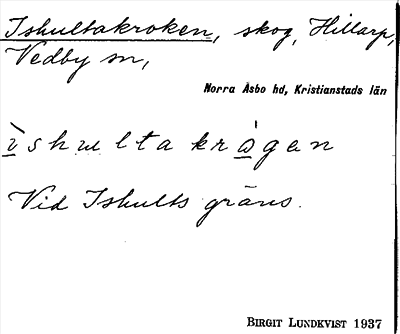 Ishultakroken, skog, Hillarp,
Vedby sn,
Norra Åsbo hd, Kristianstads län
ìshulta kràgen
Vid Ishults gräns.
BIRGIT LUNDKVIST 1937